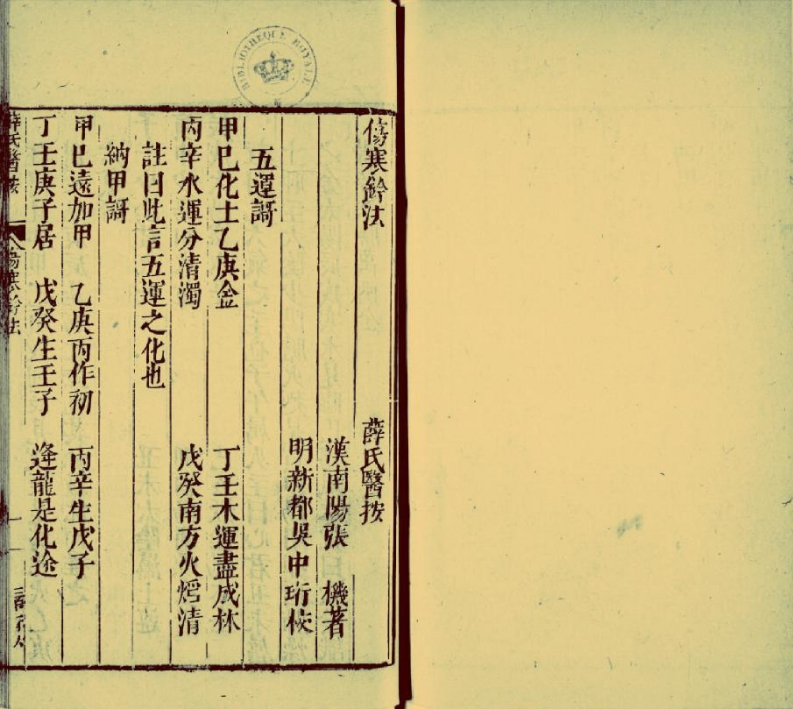 BIBLIOTHEQUE ROYALE
傷寒鈐法 薛氏醫按
漢南陽張 機著
明新都吳中珩校
五運謌
甲巳化土乙庚金 丁壬木運盡成林
丙辛水運分清濁 戊癸南方火熖清
註曰此言五運之化也
納甲謌
甲巳還加甲 乙庚丙作初 丙辛生戊子
丁壬庚子居 戊癸生壬子 逄龍是化途
薛氏醫按 傷寒鈐法 一